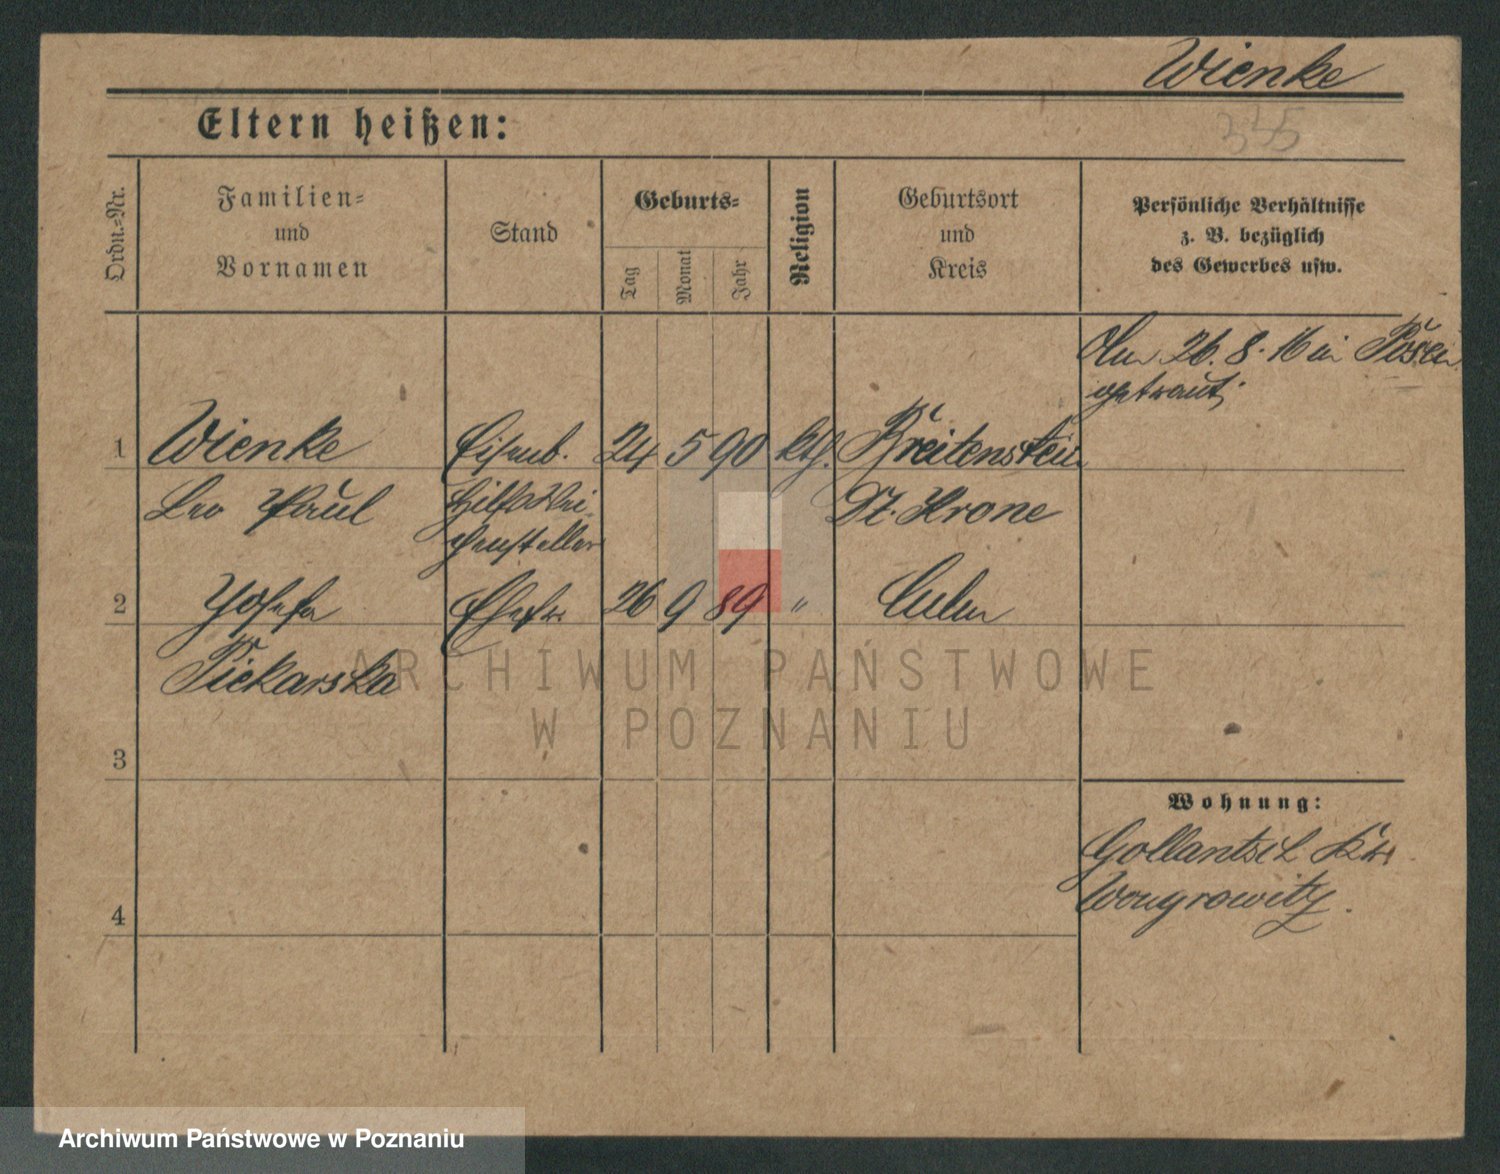 Wienke
335
Eltern heißen:
Ordn.=Nr.
Familien=
und
Vornamen
Stand
Geburts=
Tag
Monat
Jahr
Religion
Geburtsort
und
Kreis
Persönliche Verhältnisse
z. B. bezüglich
des Gewerbes usw.
Am 26. 8. 16 in Posen
getraut.
1 Wienke Eisenb. 24 5 90 kth. Breitenstein
Leo Paul Hilfswei- Dt. Krone
chensteller
2 Josefa Ehefr. 26 9 89 " Culm
Piekarska
3
Wohnung:
Gollantsch Kr.
Wongrowitz.
4
ARCHIWUM PAŃSTWOWE
W POZNANIU
Archiwum Państwowe w Poznaniu